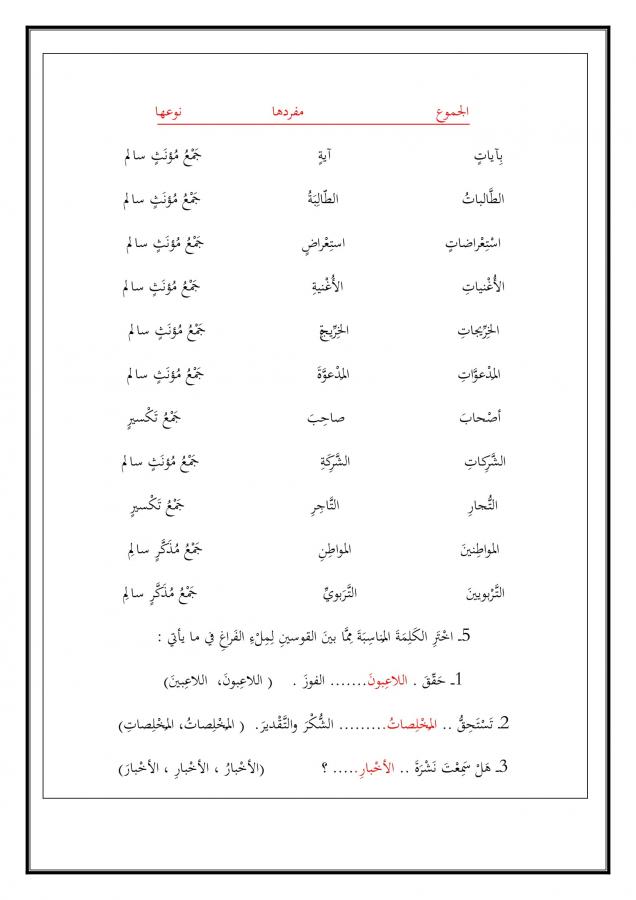 الجموع مفردها نوعها
بِآياتٍ آيةٍ جَمْعُ مُؤنَثٍ سالم
الطَّالباتُ الطّالِبَةُ جَمْعُ مُؤنَثٍ سالم
اسْتِعْراضاتٍ استِعْراضٍ جَمْعُ مُؤنَثٍ سالم
الأُغْنياتِ الأُغْنيةِ جَمْعُ مُؤنَثٍ سالم
الخِرِّيجاتِ الخِرِّيجة جَمْعُ مُؤنَثٍ سالم
المدْعوَّاتِ المدْعوَّةَ جَمْعُ مُؤنَثٍ سالم
أصْحابَ صاحِبَ جَمْعُ تَكْسيرٍ
الشَّرِكاتِ الشَّرِكَةِ جَمْعُ مُؤنَثٍ سالم
التُّجارِ التَّاجِرِ جَمْعُ تَكْسيرٍ
المواطِنينَ المواطِنِ جَمْعُ مُذَكَّرٍ سالِم
التَّرْبويينَ التَّرَبويِّ جَمْعُ مُذَكَّرٍ سالِم
5ـ اخْتَرِ الكَلِمَةَ المناسِبَةَ مِمَّا بينَ القوسينِ لِمِلْءِ الفَراغِ في ما يأتي :
1ـ حَقَّقَ . اللاعِبونَ....... الفوزَ . ( اللاعِبونَ، اللاعِبينَ)
2ـ تَسْتَحِقُّ .. المخْلِصاتُ......... الشُّكْرَ والتَّقْديرَ. ( المخْلِصاتُ، المخْلِصاتِ)
3ـ هَلْ سَمِعْتَ نَشْرَةَ .. الأخْبارِ..... ؟ (الأخْبارُ ، الأخْبارِ ، الأخْبارَ)